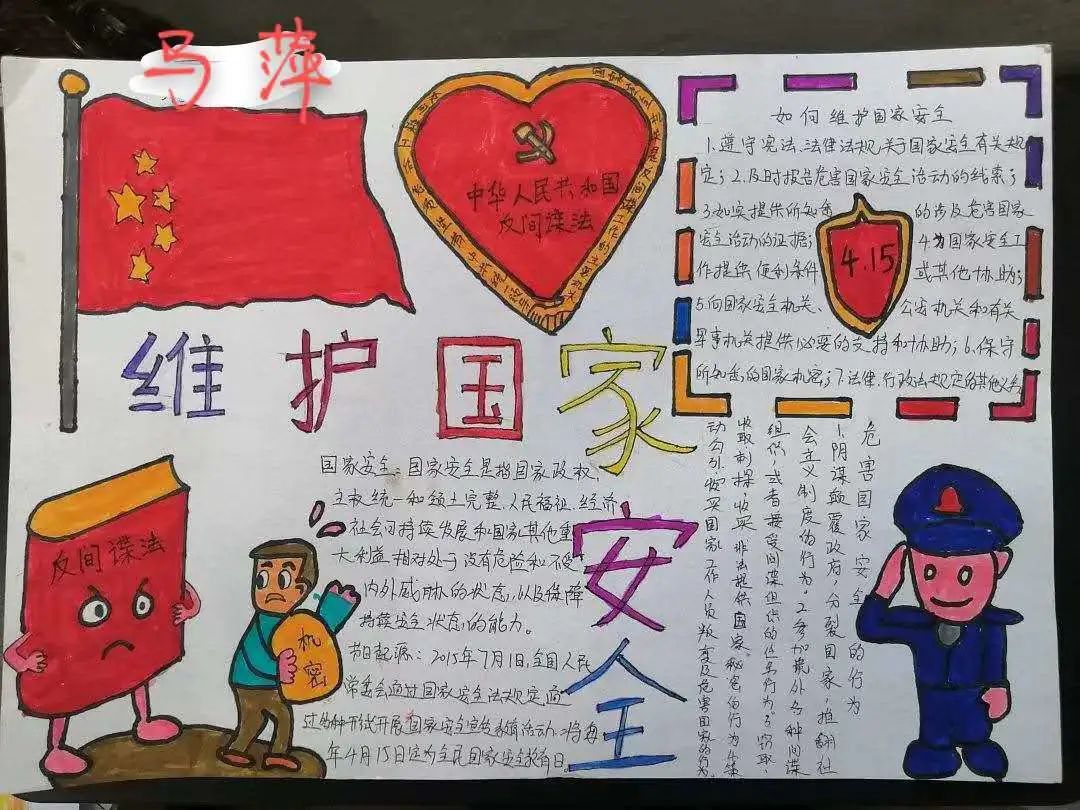 马萍
中华人民共和国
反间谍法
如何维护国家安全
1.遵守宪法、法律法规关于国家安全有关规
定；2.及时报告危害国家安全活动的线索；
3.如实提供所知悉的涉及危害国家
安全活动的证据；4.为国家安全工
作提供便利条件或其他协助；
5.向国家安全机关、公安机关和有关
军事机关提供必要的支持和协助；6.保守
所知悉的国家机密；7.法律、行政法规定的其他义务
4.15
维护国家安全
国家安全：国家安全是指国家政权、
主权统一和领土完整、人民福祉、经济
社会可持续发展和国家其他重
大利益相对处于没有危险和不受
内外威胁的状态，以及保障
持续安全状态的能力。
节日起源：2015年7月1日，全国人民
常委会通过国家安全法规定，通
过多种形式开展国家安全宣传教育活动，将每
年4月15日定为全民国家安全教育日。
危害国家安全的行为
1.阴谋颠覆政府，分裂国家，推翻社
会主义制度的行为。2.参加境外各种间谍
组织或者接受间谍组织的任务行为；3.窃取、
收取刺探、收买、非法提供国家秘密的行为；4.策
动勾引、收买国家工作人员叛变及危害国家的行为。
反间谍法
机密